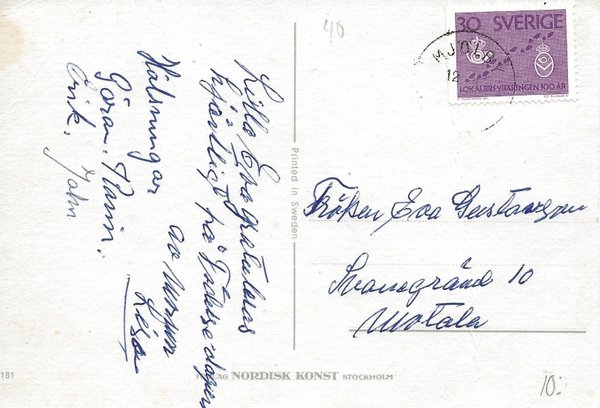 40
Lilla Eva gratuleras
hjärtligt på Födelsedagen
av
Lisa
Hälsningar
Göran, Karin,
Erik, John
Printed in Sweden
30 SVERIGE
LOKALBREVBÄRINGEN 100 ÅR
MJÖLBY
12
Fröken Eva Gustavsson
10
Motala
181
NORDISK KONST STOCKHOLM
10: